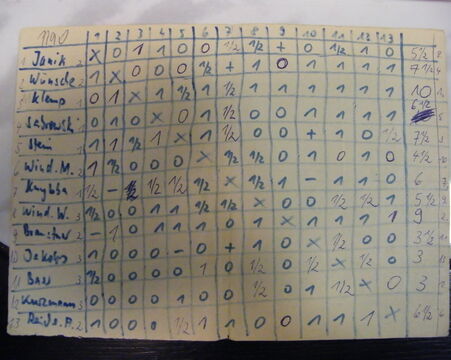 1 2 3 4 5 6 7 8 9 10 11 12 13
1 Janik 2 X 0 1 1 0 0 1/2 1/2 + 0 1/2 1 0 5 1/2
Wünsche 2 1 X 0 0 0 1/2 + 1 0 1 1 1 1 7 1/2
Klemp 1 0 1 X 1 1/2 1 1/2 1 1 1 1 1 1 10
6 1/2
4 1 0 0 X 0 1 1/2 0 0 1 1 1 1
Stein 1 1 1 1/2 1 X 1 1/2 0 0 + 1 0 1/2 7 1/2
Wind. M. 2 1 1/2 0 0 0 X 1/2 1/2 0 1 0 1 0 4 1/2
1/2 - 1/2 1/2 1/2 1/2 X 1/2 1 - 1 1 0 6
Wind. W. 3 1/2 0 0 1 1 1/2 1/2 X 0 0 1/2 1/2 1 5 1/2
- 1 0 1 1 1 0 1 X 1 1 1 1 9
10 Jakobs 3 1 0 0 0 - 0 + 1 0 X 1/2 0 0 3 1/2
11 Baas 3 1/2 0 0 0 0 1 0 1/2 0 1/2 X 1/2 0 3
12 Kurzmann 3 0 0 0 0 1 0 0 1/2 0 1 1/2 X 0 3
13 2 1 0 0 0 1/2 1 1 0 0 1 1 1 X 6 1/2